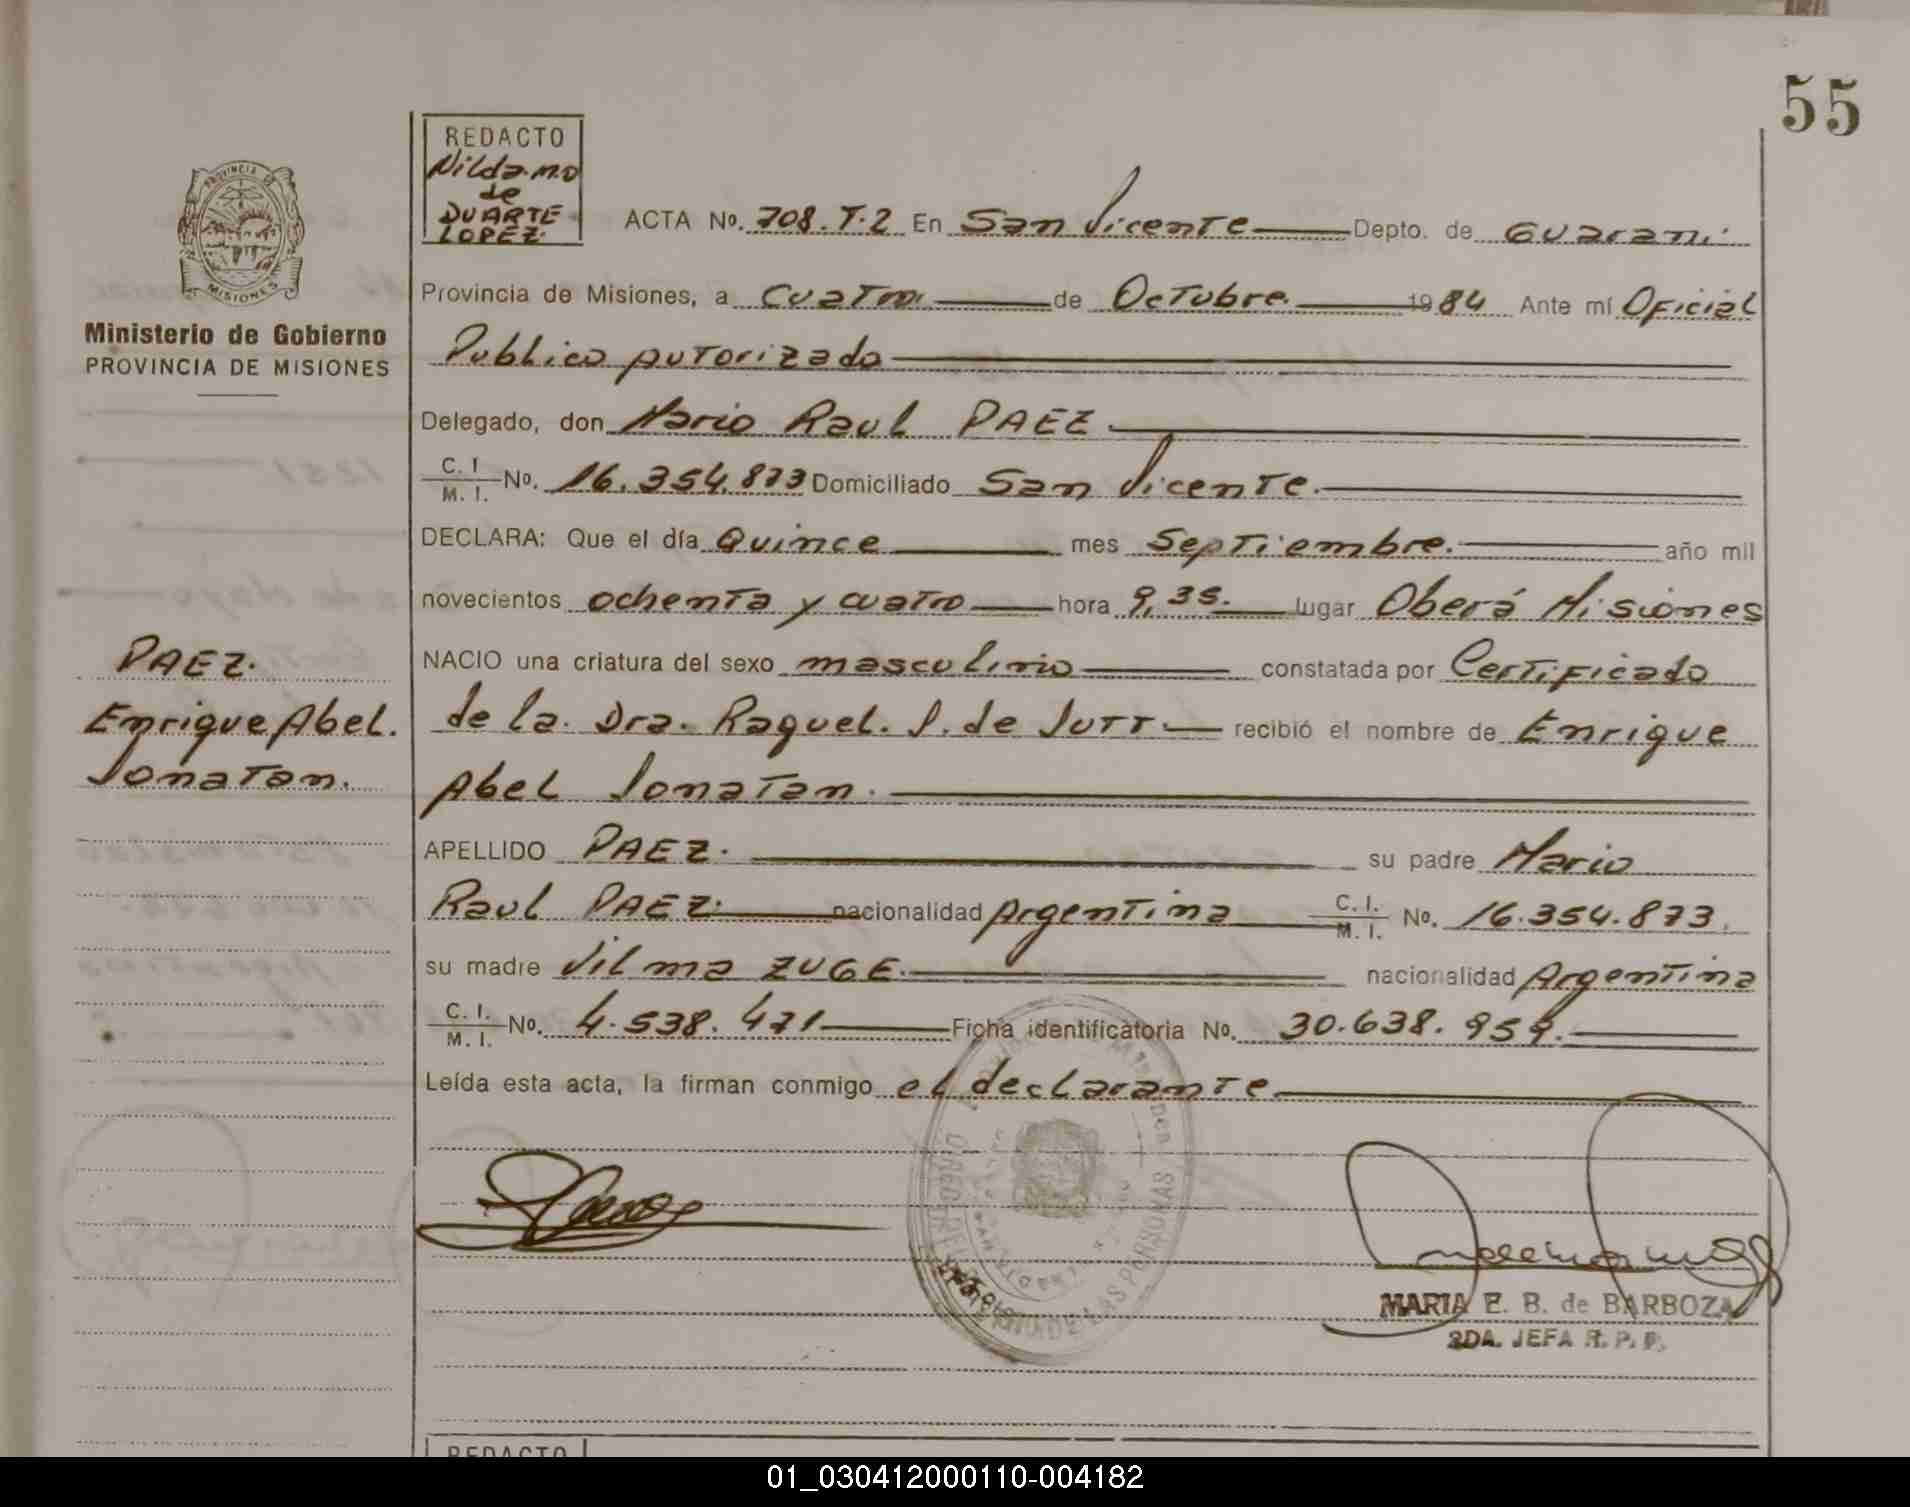 55
REDACTO
Nilda.M.D
de
DUARTE
LOPEZ.
ACTA No. 708.T.2 En San Vicente Depto. de Guarani
PROVINCIA DE
MISIONES
Provincia de Misiones, a Cuatro de Octubre 1984 Ante mí Oficial
Ministerio de Gobierno
PROVINCIA DE MISIONES
Publico Autorizado
Delegado, don Mario Raul PAEZ
C. I
M. I. No. 16.354.873 Domiciliado San Vicente.
DECLARA: Que el día Quince mes Septiembre. año mil
novecientos ochenta y cuatro hora 9,35. lugar Oberá Misiones
NACIO una criatura del sexo masculino constatada por Certificado
de la. Dra. Raquel. J. de Jutt recibió el nombre de Enrique
Abel Jonatan.
PAEZ.
Enrique Abel.
Jonatan.
APELLIDO PAEZ. su padre Mario
Raul PAEZ. nacionalidad Argentina C. I.
M. I. No. 16.354.873.
su madre Vilma ZUGE. nacionalidad Argentina
C. I.
M. I. No. 4.538.471 Ficha identificatoria No. 30.638.959.
Leída esta acta, la firman conmigo el declarante
DE LAS PERSONAS
MARIA E. B. de BARBOZA
2DA. JEFA R. P. P.
REDACTO
01_030412000110-004182